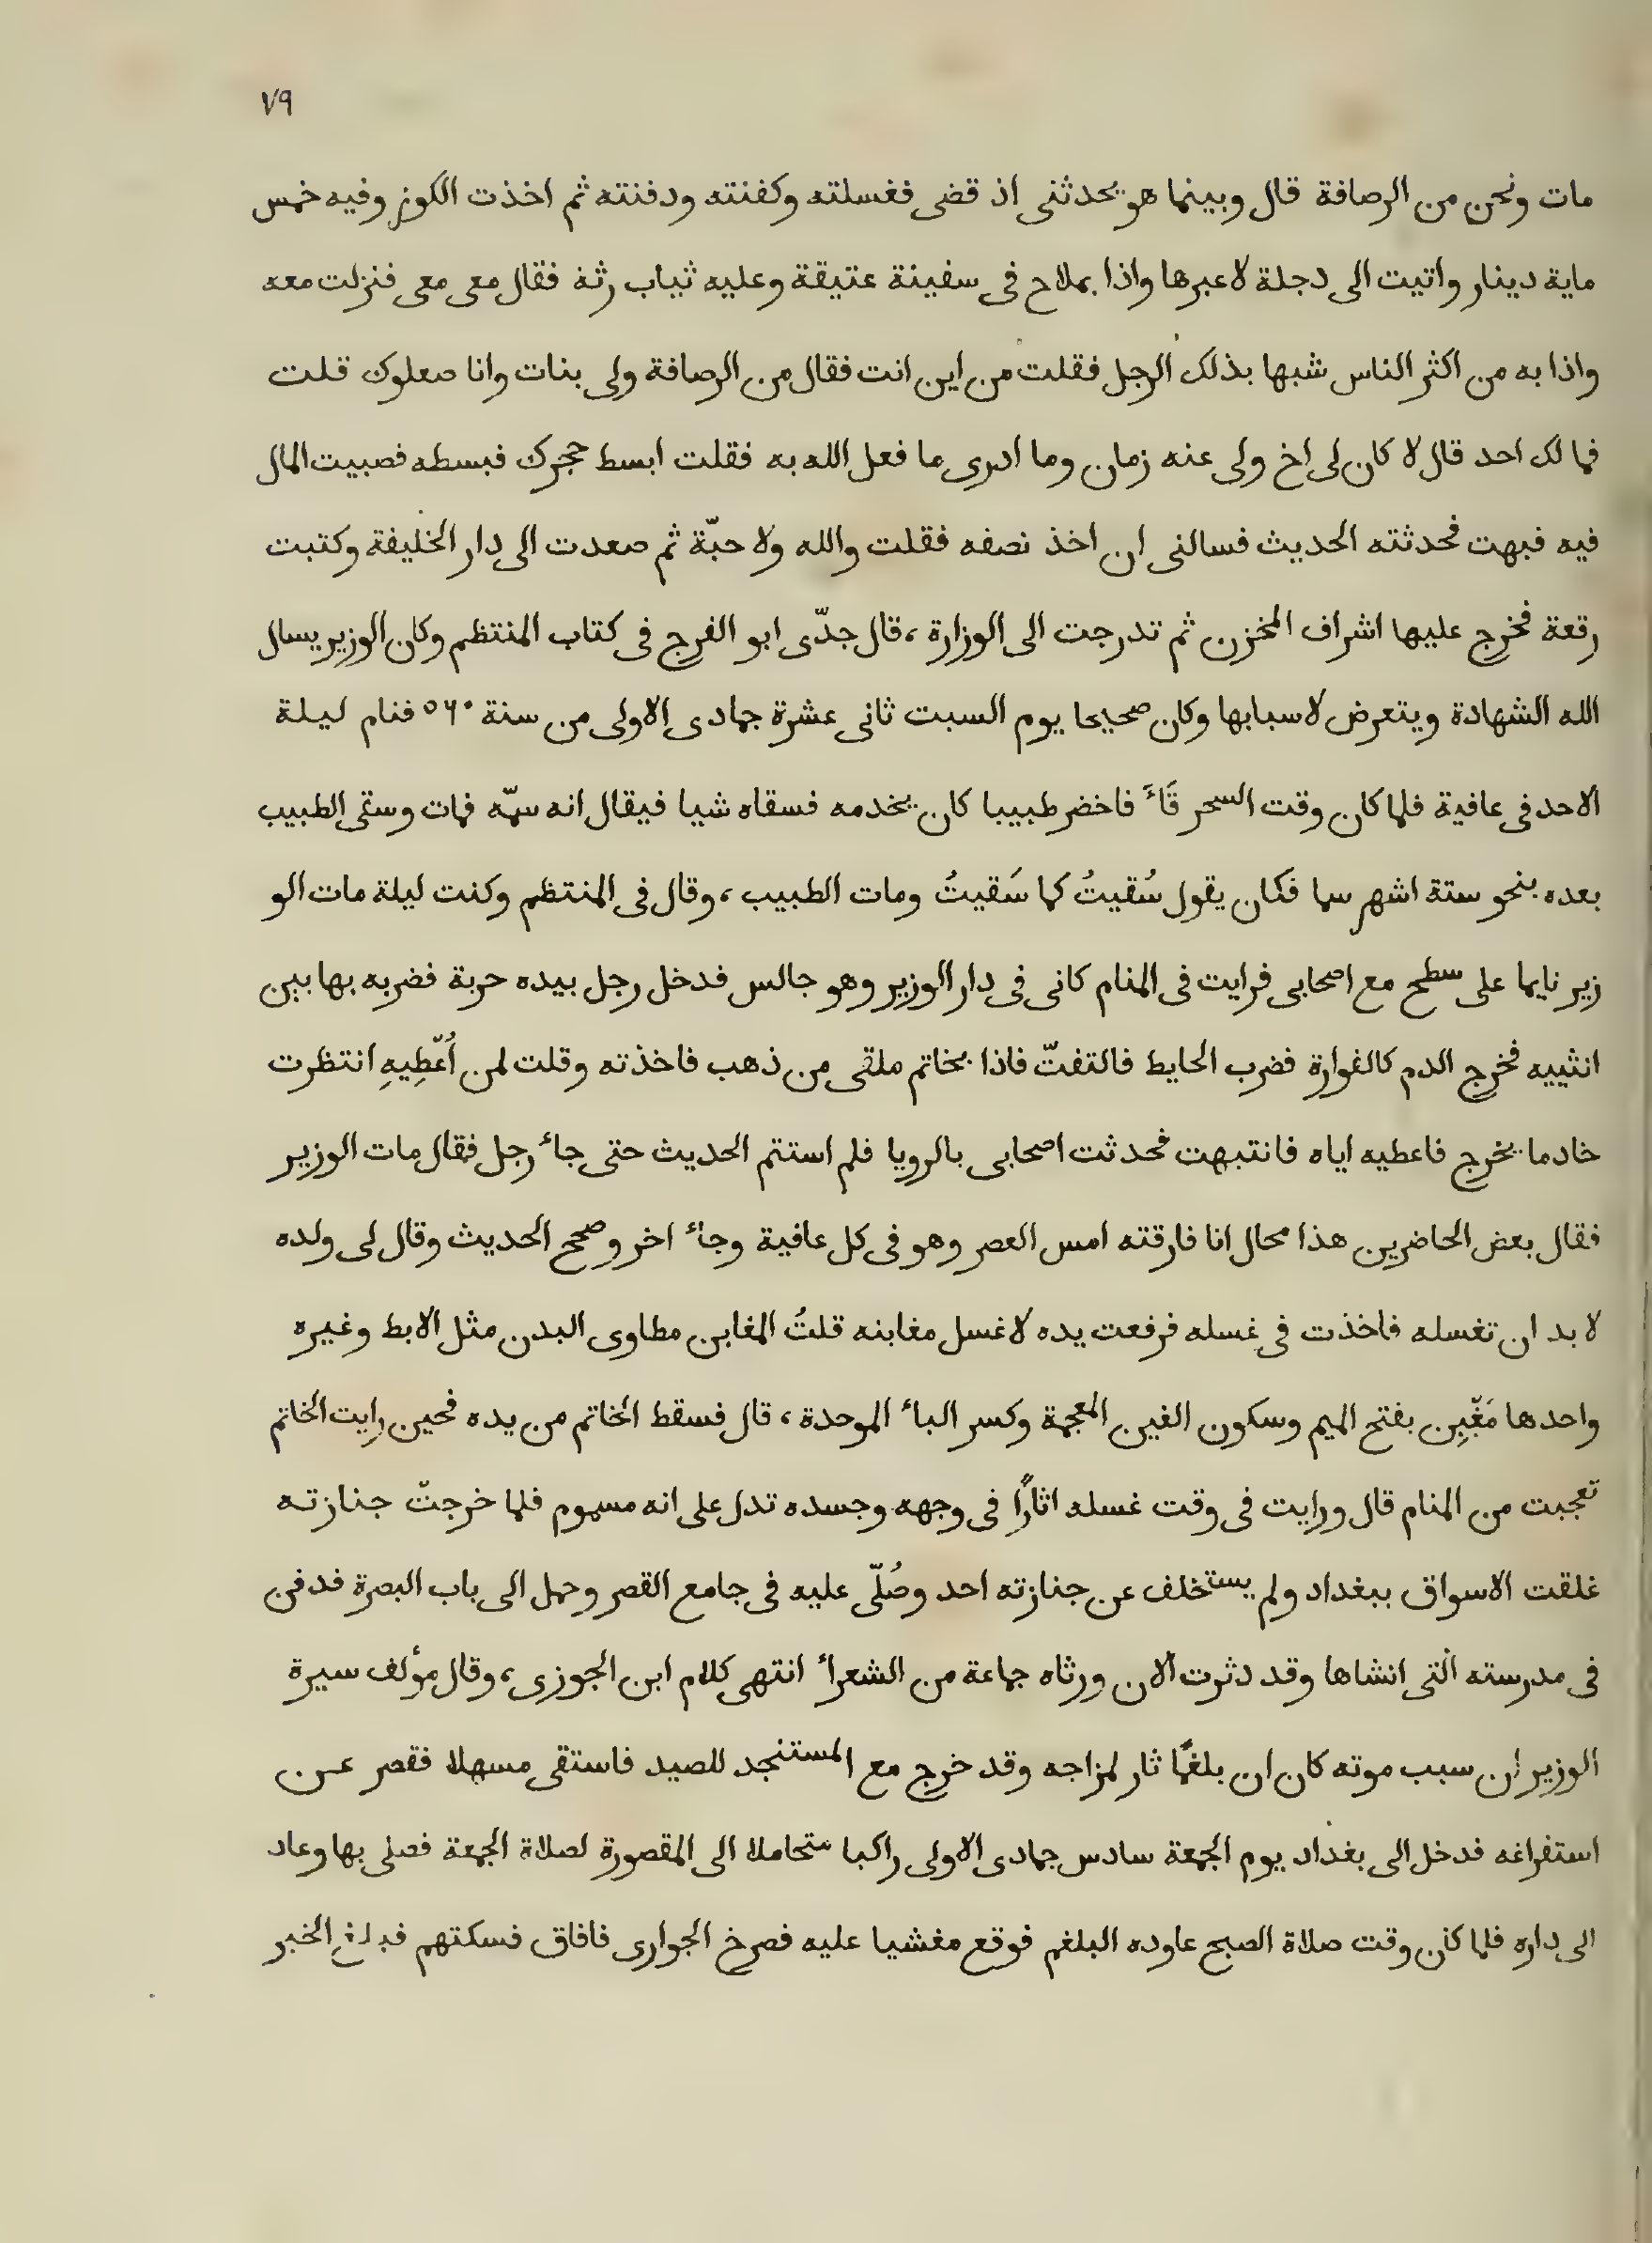 ٧٩
مات ونحن من الرصافة قال وبينما هو يحدثنى اذ قضى فغسلته وكفنته ودفنته ثم اخذت الكوز وفيه خمس
ماية دينار واتيت الى دجلة لاعبرها واذا بملاح فى سفينة عتيقة وعليه ثياب رثة فقال معى معى فنزلت معه
واذا به من اكثر الناس شبها بذلك الرجل فقلت من اين انت فقال من الرصافة ولى بنات وانا صعلوك قلت
فما لك احد قال لا كان لى اخ ولى عنه زمان وما ادرى ما فعل الله به فقلت ابسط حجرك فبسطه فصبيت المال
فيه فبهت فحدثته الحديث فسالنى ان اخذ نصفه فقلت والله ولا حبّة ثم صعدت الى دار الخليفة وكتبت
رقعة فخرج عليها اشراف المخزن ثم تدرجت الى الوزارة ، قال جدّى ابو الفرج فى كتاب المنتظم وكان الوزير يسال
الله الشهادة ويتعرض لاسبابها وكان صحيحا يوم السبت ثانى عشرة جمادى الاولى من سنة ٥٦٠ فنام ليلة
الاحد فى عافية فلما كان وقت السحر قَاءَ فاخضر طبيبا كان يخدمه فسقاه شيا فيقال انه سمّه فمات وسقى الطبيب
بعده بنحو ستة اشهر سما فكان يقول سُقيتُ كما سَقيتُ ومات الطبيب ، وقال فى المنتظم وكنت ليلة مات الو
زير نايما على سطح مع اصحابى فرايت فى المنام كانى فى دار الوزير وهو جالس فدخل رجل بيده حربة فضربه بها بين
انثييه فخرج الدم كالفوارة فضرب الحايط فالتفتّ فاذا بخاتم ملقى من ذهب فاخذته وقلت لمن اُعّطِيهِ انتظرت
خادما يخرج فاعطيه اياه فانتبهت فحدثت اصحابى بالرويا فلم استتم الحديث حتى جاء رجل فقال مات الوزير
فقال بعض الحاضرين هذا محال انا فارقته امس العصر وهو فى كل عافية وجاء اخر وصحح الحديث وقال لى ولده
لا بد ان تغسله فاخذت فى غسله فرفعت يده لاغسل مغابنه قلتُ المغابن مطاوى البدن مثل الابط وغيره
واحدها مَغّبِن بفتح الميم وسكون الغين المعجمة وكسر الباء الموحدة ، قال فسقط الخاتم من يده فحين رايت الخاتم
تعجبت من المنام قال ورايت فى وقت غسله اثارًا فى وجهه وجسده تدل على انه مسموم فلما خرجتّ جنازته
غلقت الاسواق ببغداد ولم يستخلف عن جنازته احد وصُلّى عليه فى جامع القصر وحمل الى باب البصرة فدفن
فى مدرسته التى انشاها وقد دثرت الان ورثاه جماعة من الشعراء انتهى كلام ابن الجوزى ، وقال مؤلف سيرة
الوزير ان سبب موته كان ان بلغمًا ثار لمزاجه وقد خرج مع المستنجد للصيد فاستقى مسهلا فقصر عن
استفراغه فدخل الى بغداد يوم الجمعة سادس جمادى الاولى راكبا متحاملا الى المقصورة لصلاة الجمعة فصلى بها وعاد
الى داره فلما كان وقت صلاة الصبح عاوده البلغم فوقع مغشيا عليه فصرخ الجوارى فافاق فسكتهم فبلغ الخبر